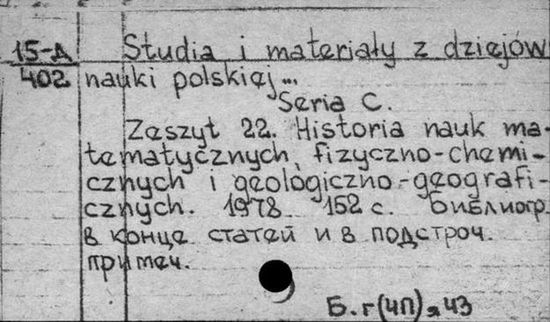 15-Д Studia i materiały z dziejów
402 nauki polskiej...
Seria C.
Zeszyt 22. Historia nauk ma-
tematycznych, fizyczno-chemi-
cznych i geologiczno-geografi-
cznych. 1978 152 с. Библиогр.
в конце статей и в подстроч.
примеч.
Б. г(4П)я43